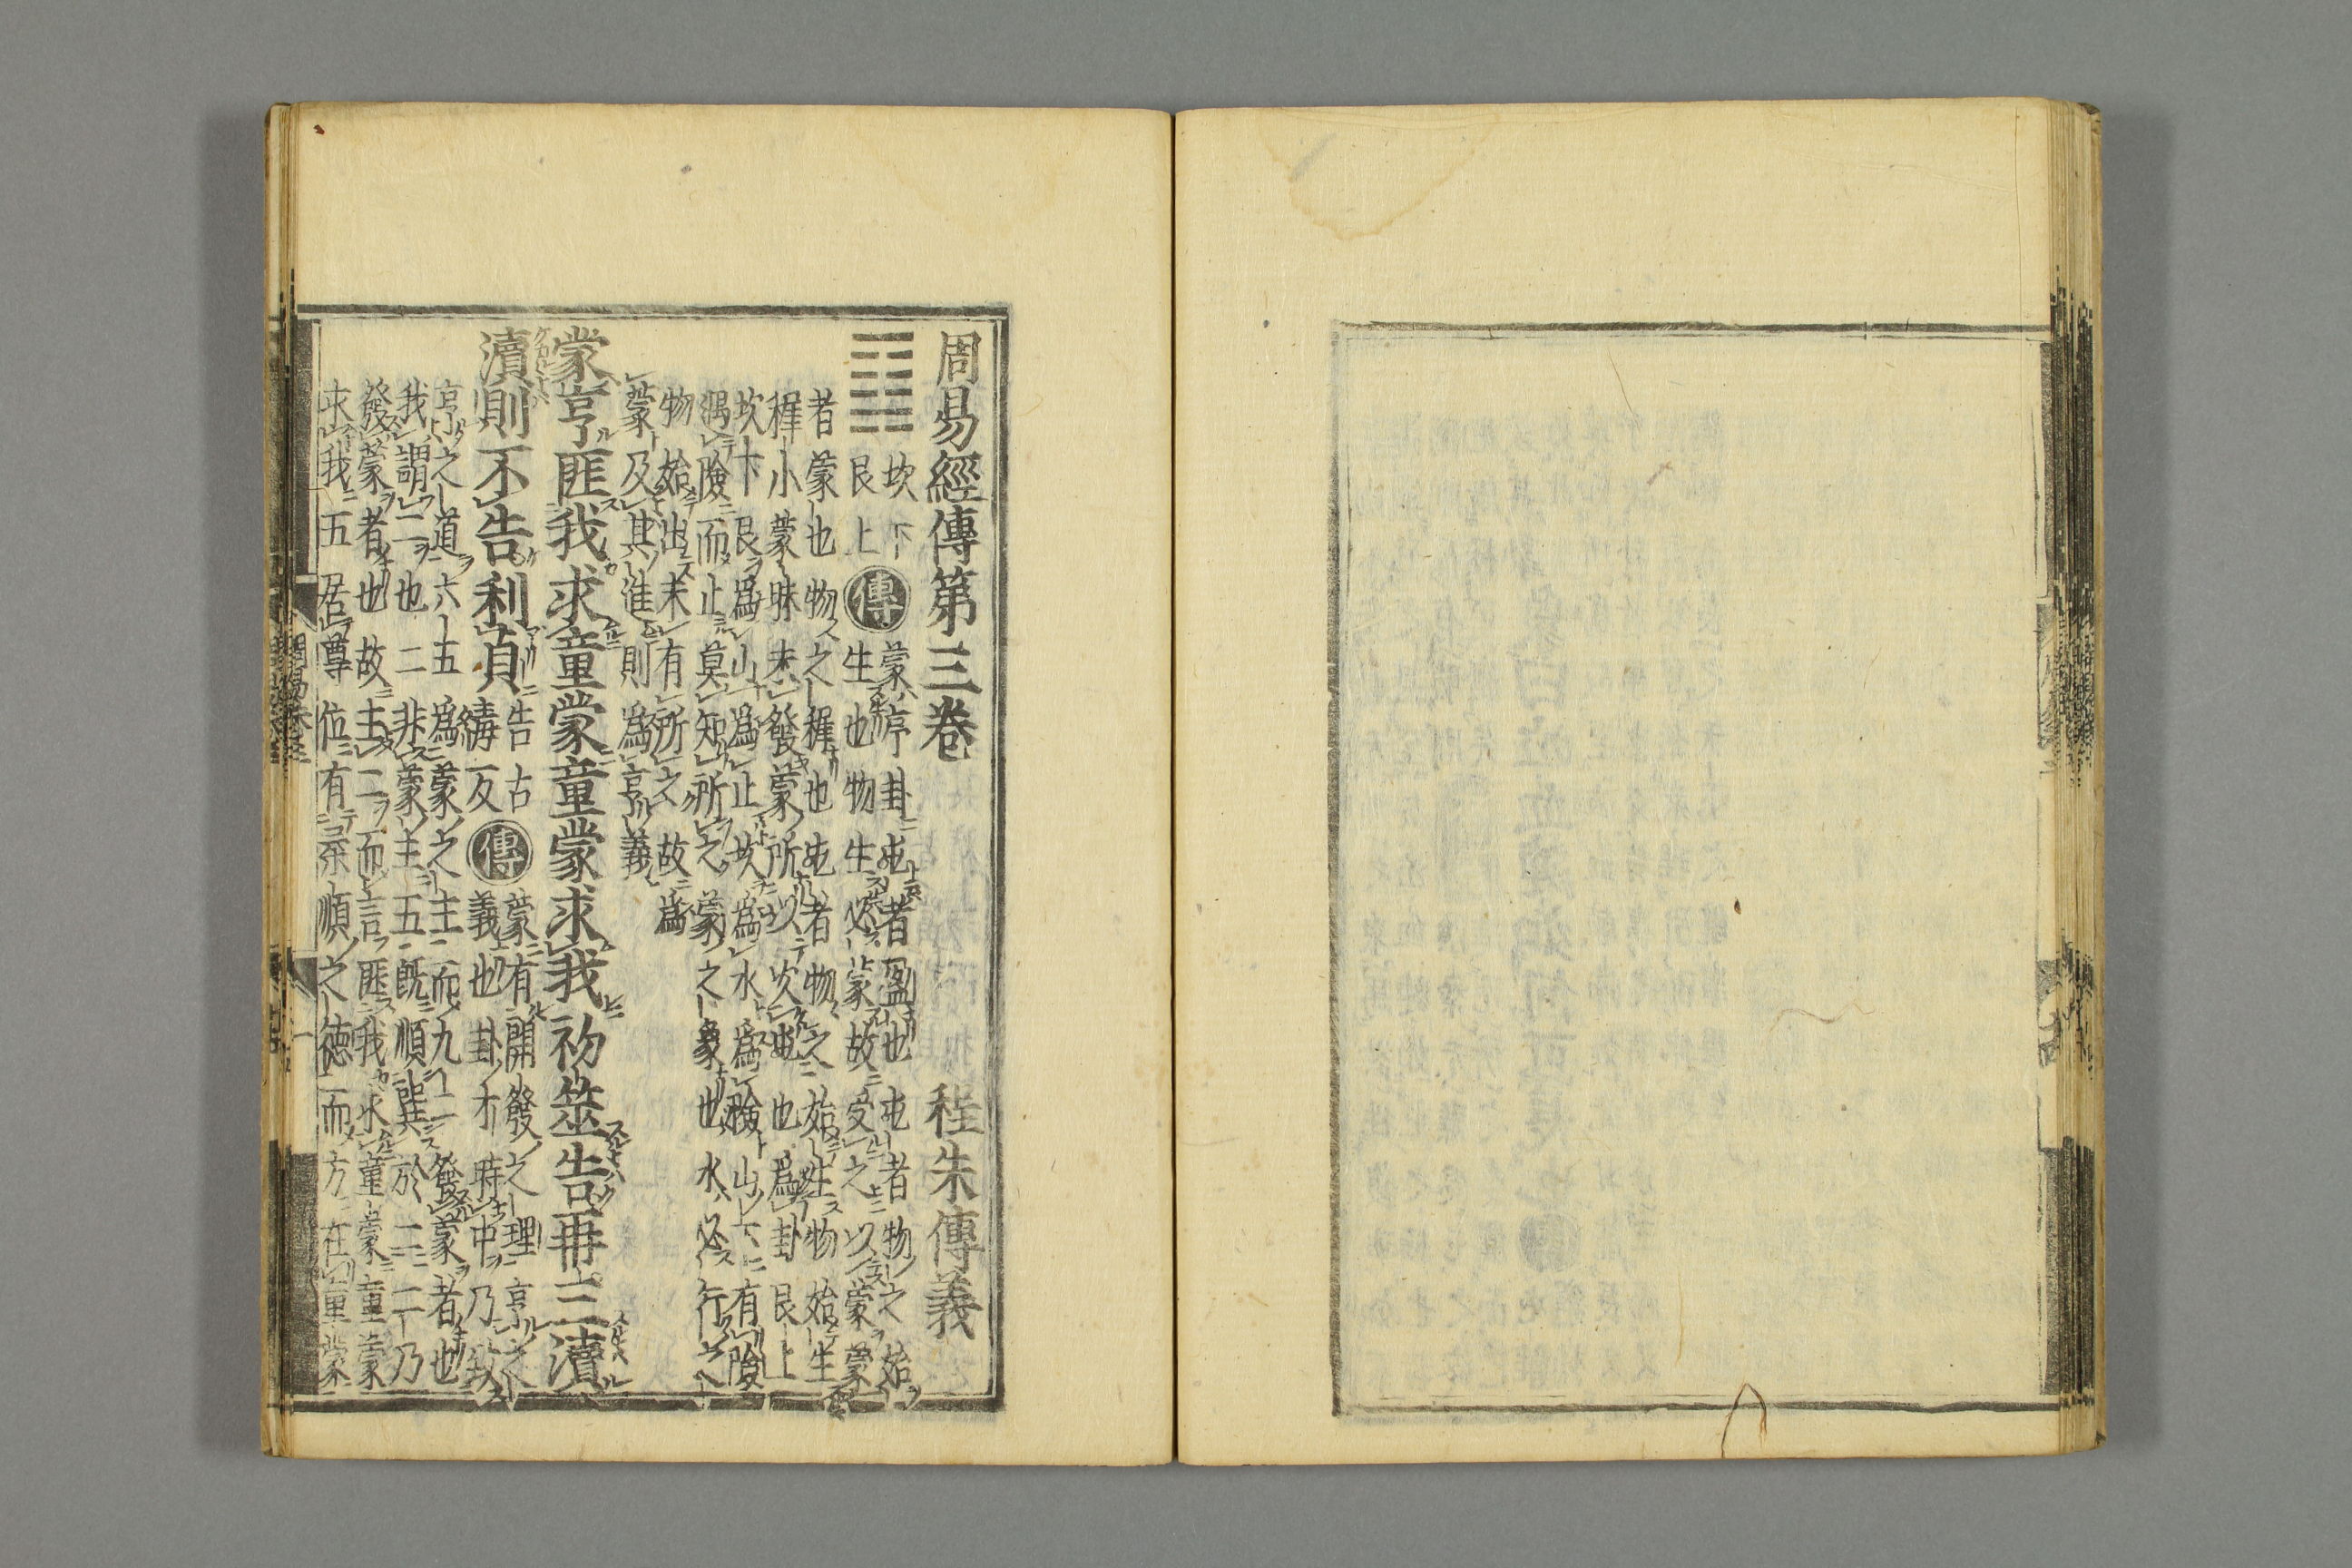 周易經傳第三卷 程朱傳義
坎下 傳 蒙序卦屯者盈也屯者物之始
艮上 生也物生必蒙故受之以蒙蒙
者蒙也物之穉也屯者物之始生物始生
穉小蒙昧未發蒙所以次屯也爲卦艮上
坎下艮爲山爲止坎爲水爲險山下有險
遇險而止莫知所之蒙之象也水必行之
物始出未有所之故爲
蒙及其進則爲亨義
蒙亨匪我求童蒙童蒙求我初筮告再三瀆
瀆則不告利貞 告古
瀆反 傳 蒙有開發之理亨之
義也卦才時中乃致
亨之道六五爲蒙之主而九二發蒙者也
我謂二也二非蒙主五既順巽於二二乃
發蒙者也故主二而言匪我求童蒙童蒙
求我五居尊位有柔順之德而方在童蒙